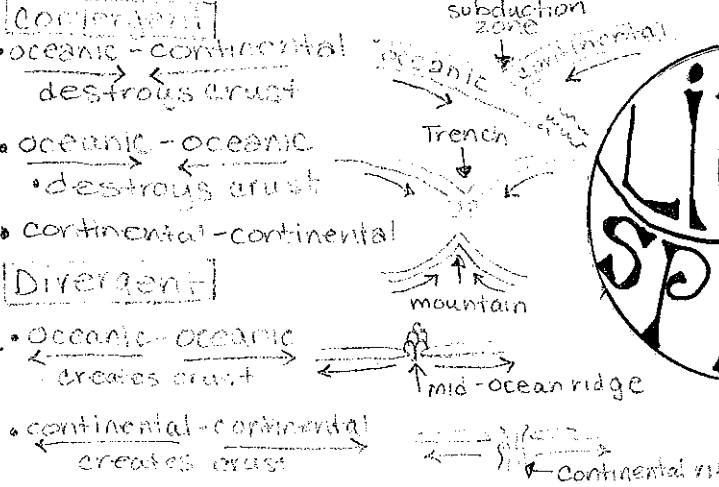 Convergent
•oceanic-continental
destroys crust
• oceanic-oceanic
•destroys crust
• continental-continental
Divergent
• oceanic-oceanic
creates crust
• continental-continental
creates crust
subduction
zone
oceanic
continental
Trench
mountain
mid-ocean ridge
Continental
Li
Sp